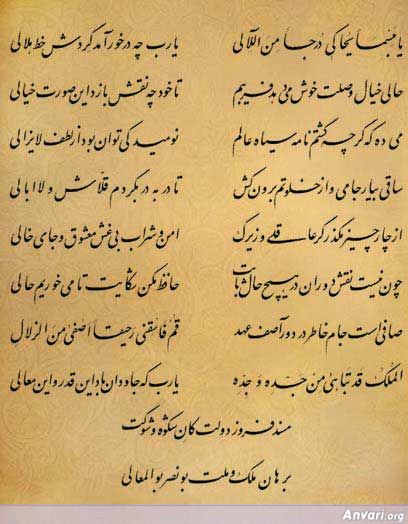 یا مبسماً یحاکی درجاً من اللآلی یارب چه درخور آمد گردش خط هلالی
حالی خیال وصلت خوش می‌دهد فریبم تا خود چه نقش بازد این صورت خیالی
می ده که گرچه گشتم نامه سیاه عالم نومید کی توان بود از لطف لایزالی
ساقی بیار جامی و از خلوتم برون کش تا در به در بگردم قلاش و لاابالی
از چار چیز مگذر گر عاقلی و زیرک امن و شراب بی‌غش معشوق و جای خالی
چون نیست نقش دوران در هیچ حال ثابت حافظ مکن شکایت تا می خوریم حالی
صافی است جام خاطر در دور آصف عهد قم فاسقنی رحیقاً اصفی من الزلال
الملک قد تباهی من جده و جده یارب که جاودان باد این قدر و این معالی
مسند فروز دولت کان شکوه و شوکت
برهان ملک و ملت بونصر بوالمعالی
Anvari.org